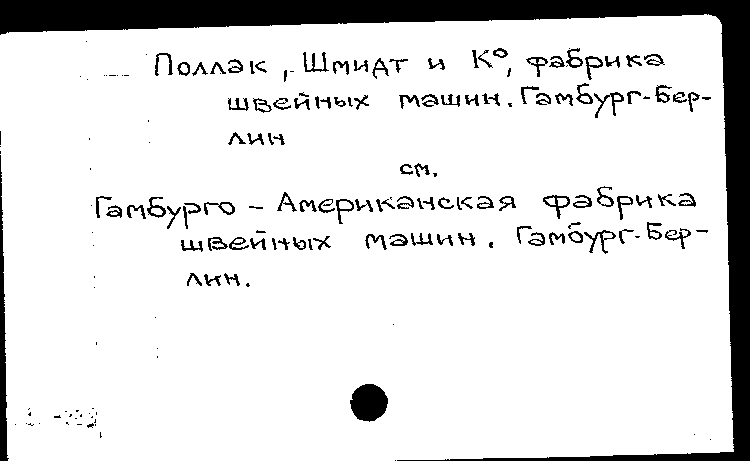 Поллак, Шмидт и К°, фабрика
швейных машин. Гамбург-Бер-
лин
см.
Гамбурго - Американская фабрика
швейных машин. Гамбург-Бер-
лин.